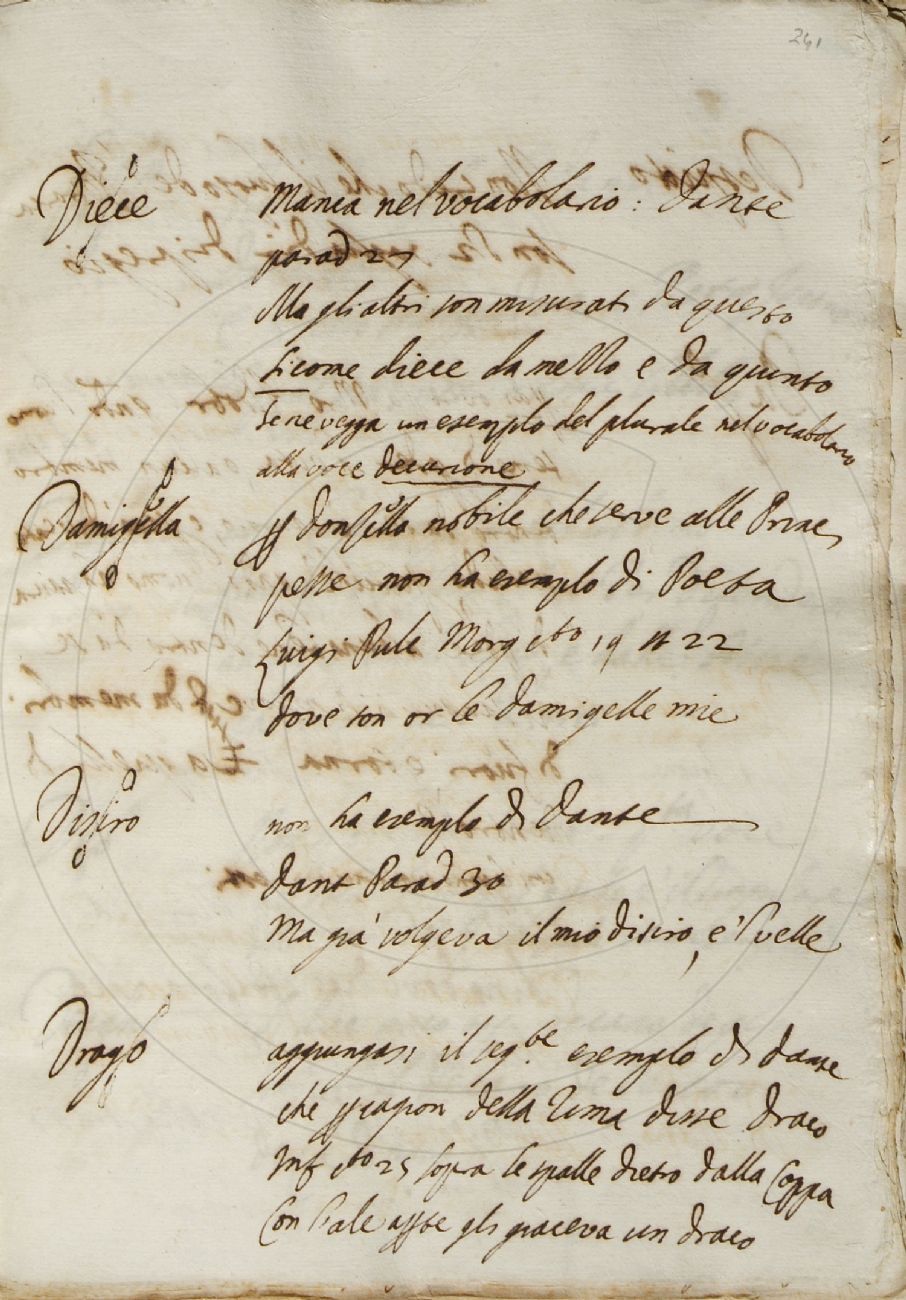 241
Diece Manca nel vocabolario: Dante
parad 27
Ma gli altri son misurati da questo
sicome diece da mezzo e da quinto
se ne vegga un esemplo del plurale nel vocabolario
alla voce decurione
Damigella p donzella nobile che serve alle Princi
pesse non ha esemplo di Poeta
Luigi Pulc Morg cto 19 st 22
dove son or le damigelle mie
Disiro non ha esemplo di Dante
dant Parad 30
Ma già volgeva il mio disiro, e'l velle
Drago aggiungasi il segte esemplo di dante
che p cagion della rima disse draco
inf cto 25 sopra le spalle dietro dalla coppa
Con l'ale apte gli giaceva un draco